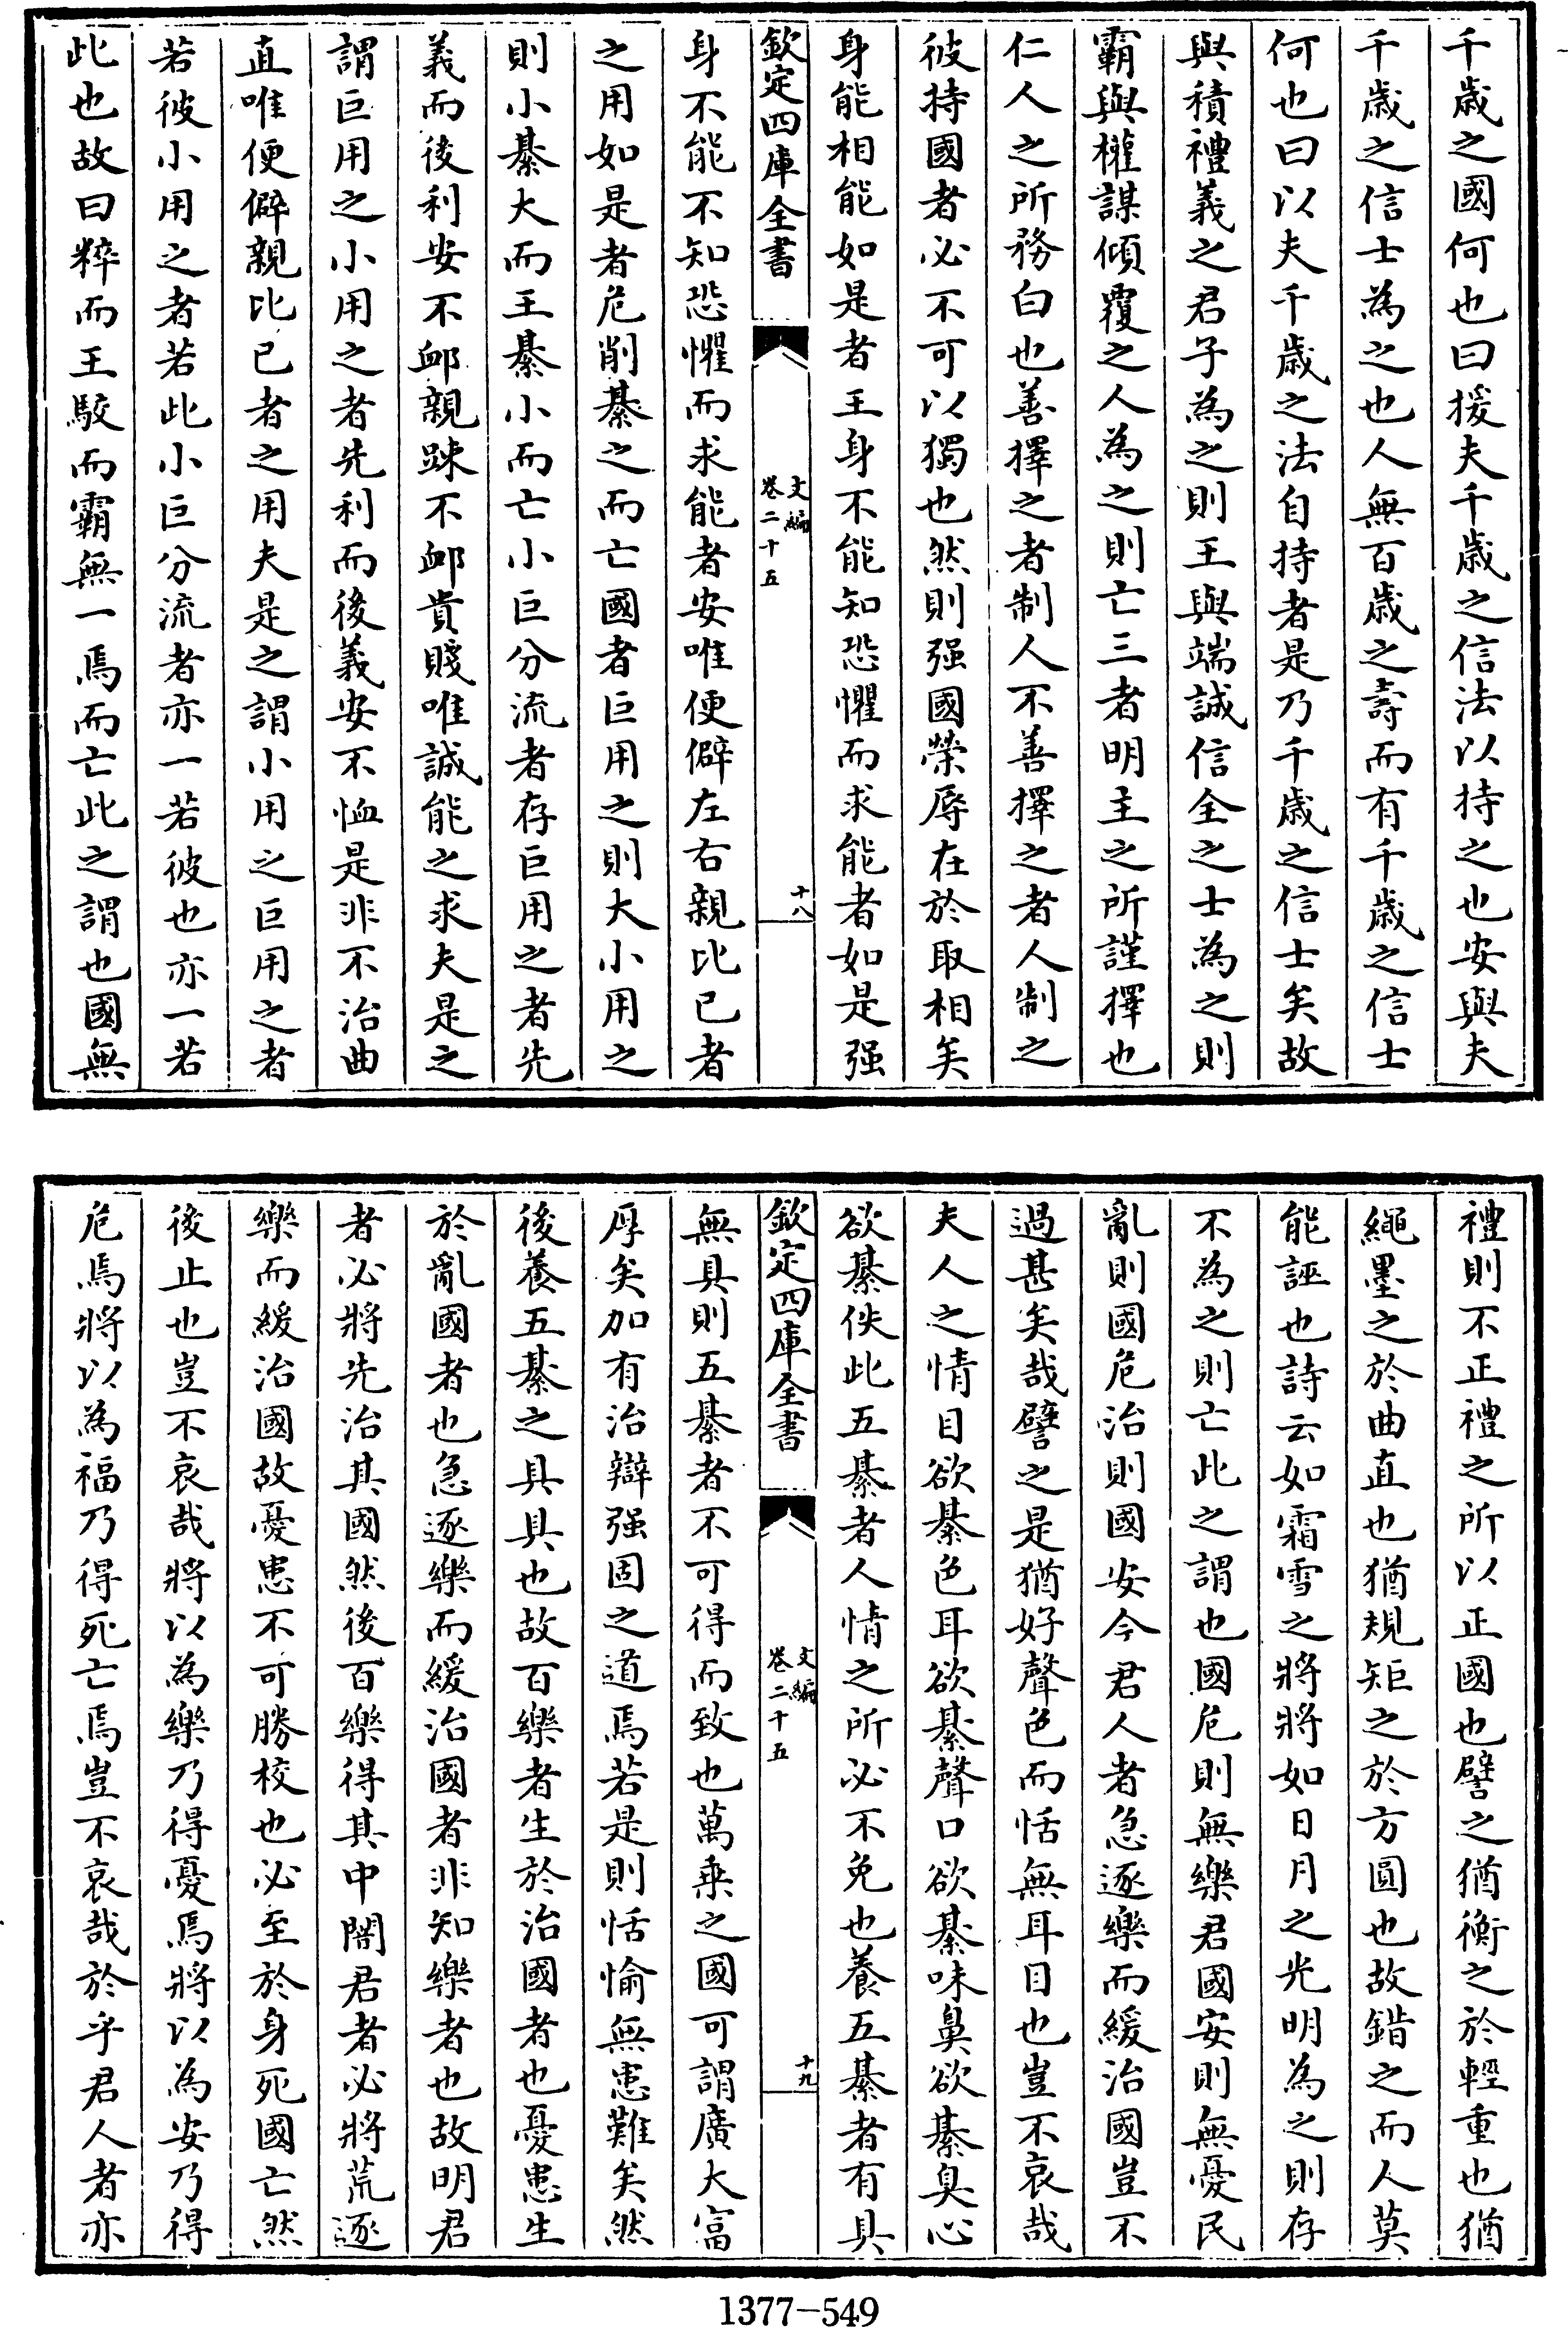 千歳之國何也曰援夫千歳之信法以持之也安與夫
千歳之信士為之也人無百歳之壽而有千歳之信士
何也曰以夫千歳之法自持者是乃千歳之信士矣故
與積禮義之君子為之則王與端誠信全之士為之則
霸與權謀傾覆之人為之則亡三者明主之所謹擇也
仁人之所務白也善擇之者制人不善擇之者人制之
彼持國者必不可以獨也然則强國榮辱在於取相矣
身能相能如是者王身不能知恐懼而求能者如是强
欽定四庫全書
文編
卷二十五
十八
身不能不知恐懼而求能者安唯便僻左右親比已者
之用如是者危削綦之而亡國者巨用之則大小用之
則小綦大而王綦小而亡小巨分流者存巨用之者先
義而後利安不䘏親踈不䘏貴賤唯誠能之求夫是之
謂巨用之小用之者先利而後義安不恤是非不治曲
直唯便僻親比已者之用夫是之謂小用之巨用之者
若彼小用之者若此小巨分流者亦一若彼也亦一若
此也故曰粹而王駮而霸無一焉而亡此之謂也國無
禮則不正禮之所以正國也譬之猶衡之於輕重也猶
繩墨之於曲直也猶規矩之於方圓也故錯之而人莫
能誣也詩云如霜雪之將將如日月之光明為之則存
不為之則亡此之謂也國危則無樂君國安則無憂民
亂則國危治則國安今君人者急逐樂而緩治國豈不
過甚矣哉譬之是猶好聲色而恬無耳目也豈不哀哉
夫人之情目欲綦色耳欲綦聲口欲綦味鼻欲綦臭心
欲綦佚此五綦者人情之所必不免也養五綦者有具
欽定四庫全書
文編
卷二十五
十九
無具則五綦者不可得而致也萬乗之國可謂廣大富
厚矣加有治辯强固之道焉若是則恬愉無患難矣然
後養五綦之具具也故百樂者生於治國者也憂患生
於亂國者也急逐樂而緩治國者非知樂者也故明君
者必將先治其國然後百樂得其中闇君者必將荒逐
樂而緩治國故憂患不可勝校也必至於身死國亡然
後止也豈不哀哉將以為樂乃得憂焉將以為安乃得
危焉將以為福乃得死亡焉豈不哀哉於乎君人者亦
1377-549